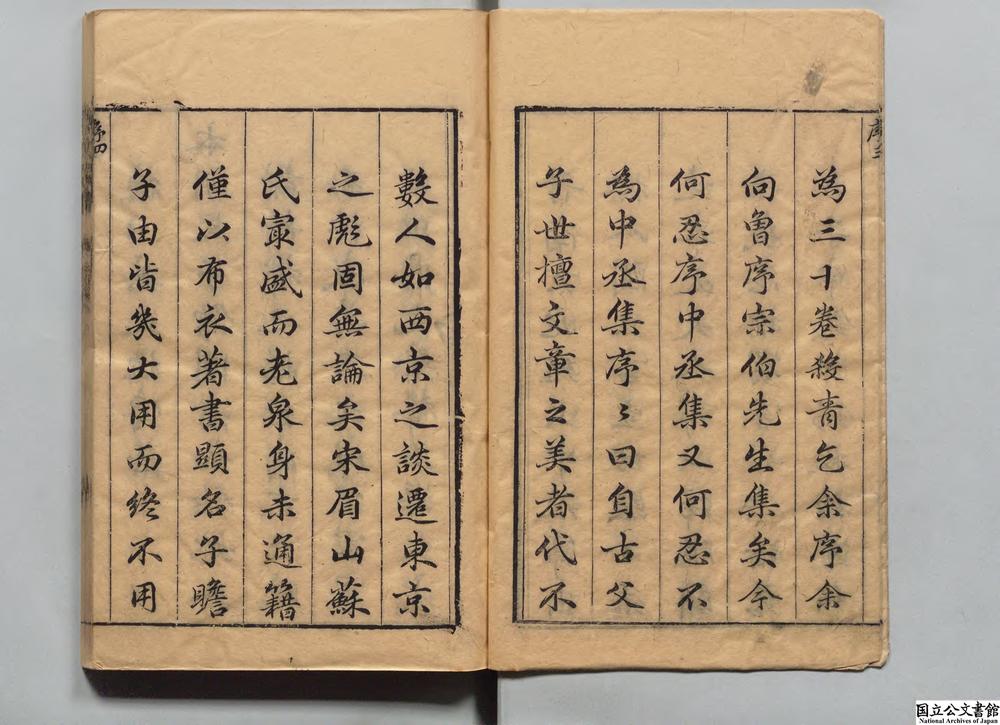 為三十卷殺青乞余序余
向曾序宗伯先生集矣今
何忍序中丞集又何忍不
為中丞集序〻曰自古父
子世擅文章之美者代不
序三
數人如西京之談遷東京
之彪固無論矣宋眉山蘇
氏寂盛而老泉身未通籍
僅以布衣著書顯名子瞻
子由皆幾大用而終不用
序四
国立公文書館
National Archives of Japan